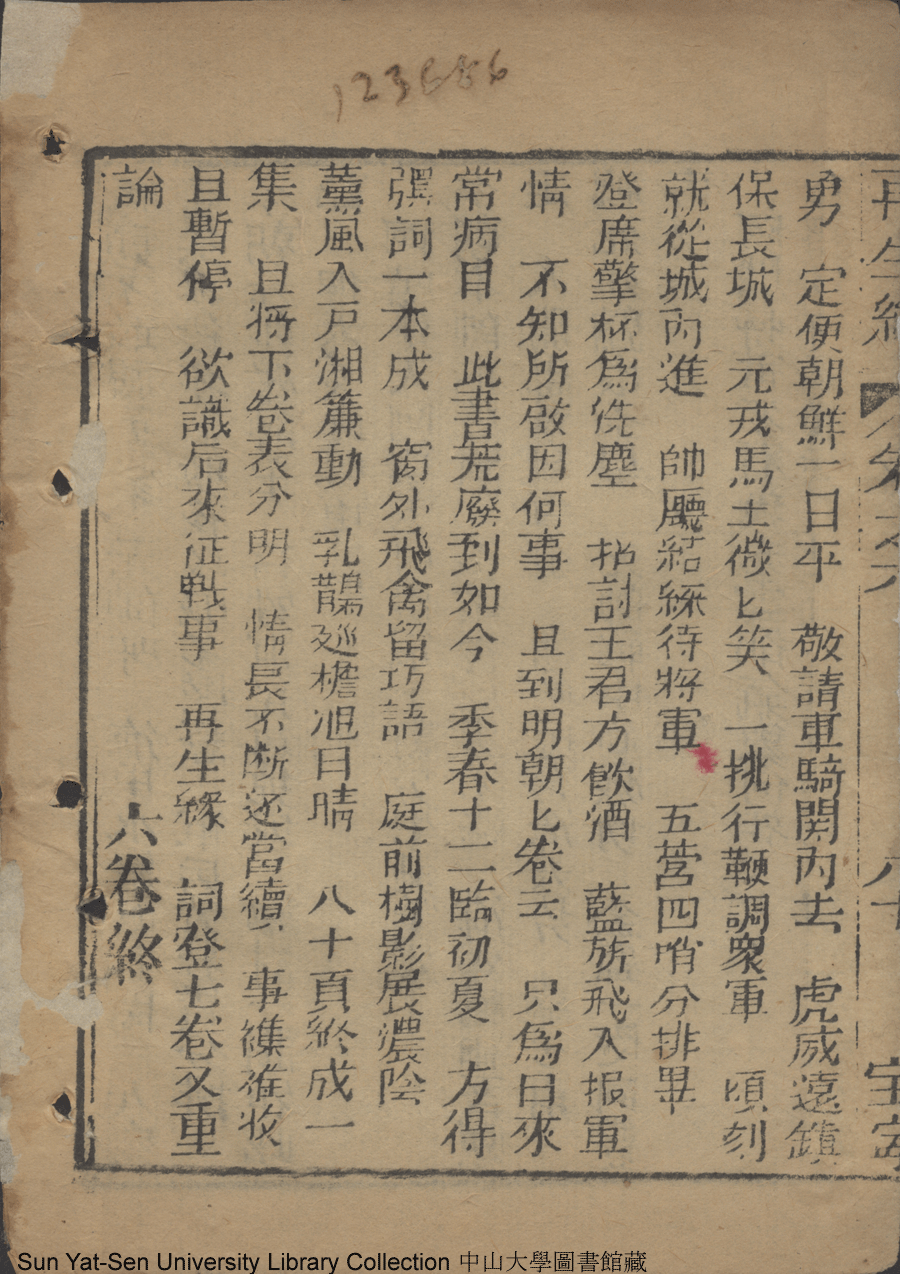 123686
再生緣 卷之六 八十 宝宁
勇 定便朝鮮一日平 敬請車騎関內去 虎威遠鎮
保長城 元戎馬上微匕笑 一挑行鞭調衆軍 頃刻
就從城內進 帥廳結綵待將軍 五營四哨分排畢
登席擎杯爲洗塵 招討王君方飲酒 藍旂飛入报軍
情 不知所啟因何事 且到明朝匕卷云 只爲日來
常病目 此書荒廢到如今 季春十二臨初夏 方得
彈詞一本成 窗外飛禽留巧語 庭前樹影展濃陰
薰風入戸湘簾動 乳鵲廵檐旭日晴 八十頁終成一
集 且將下卷表分明 情長不断还當續 事襍难收
且暫停 欲識后來征戰事 再生緣 詞登七卷又重
論
六卷終
Sun Yat-Sen University Library Collection 中山大學圖書館藏